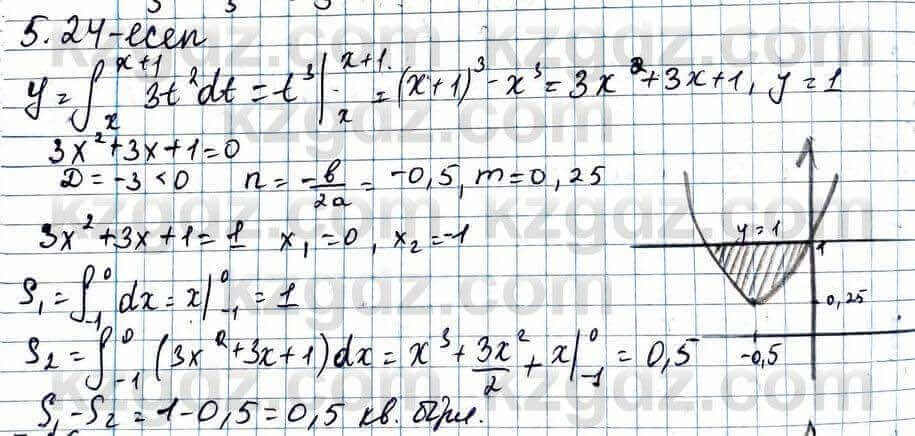 5.24-есеп
y = ∫ₓˣ⁺¹ 3t²dt = t³ |ₓˣ⁺¹ = (x+1)³ - x³ = 3x²+3x+1, y=1
3x²+3x+1=0
D = -3 < 0 n = -b/2a = -0,5, m=0,25
3x²+3x+1=1 x₁=0, x₂=-1
S₁ = ∫₋₁⁰ dx = x|₋₁⁰ = 1
S₂ = ∫₋₁⁰ (3x²+3x+1)dx = x³ + 3x²/2 + x|₋₁⁰ = 0,5
S₁-S₂ = 1-0,5 = 0,5 кв. бірл.
y=1
1
0,25
-0,5
kzgdz.com